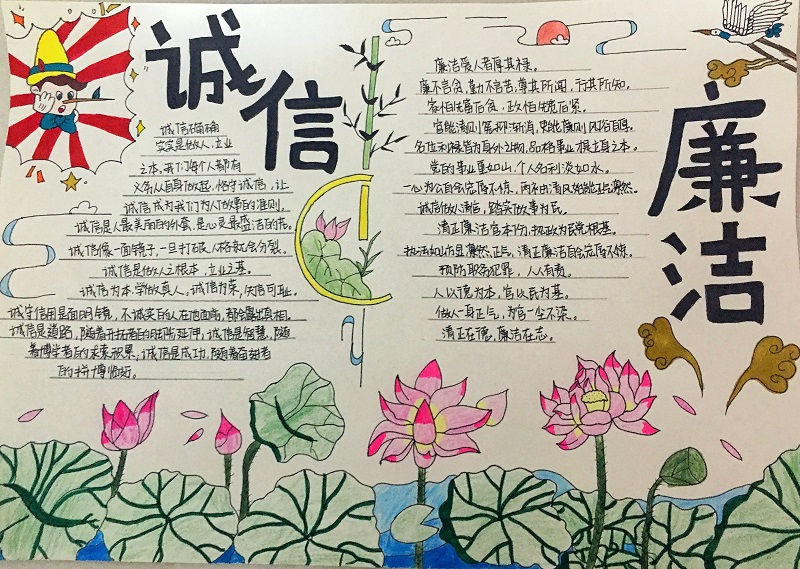 诚信
诚信确确
实实是做人、立业
之本,我们每个人都有
义务从自身做起,恪守诚信,让
诚信成为我们为人做事的准则。
诚信是人最美丽的外套,是心灵最盛洁的花。
诚信像一面镜子,一旦打破人格就会分裂。
诚信是做人之根本,立业之基。
诚信为本,学做真人。诚信为荣,失信可耻。
诚守信用是面明镜,不诚实的人在他面前,都会露出真相。
诚信是道路,随着开拓者的脚步延伸,诚信是智慧,随
着博学者的求索积累,诚信是成功,随着奋进者
的拼搏临近。
廉洁
廉洁爱人者厚其禄。
廉不言贪,勤不言苦,尊其所闻,行其所知。
家俗生富后贫,政俗生宽后紧。
官能清则冤抑渐消,吏能廉则风俗自厚。
名位利禄皆为身外之物,品格事业才根立身之本。
党的事业重如山,个人名利淡如水。
一心为公自会宠辱不惊,两袖清风始能正气凛然。
诚信做人清白,踏实做事为民。
清正廉洁官本份,执政为民党根基。
执法如山方显凛然正气,清正廉洁自会宠辱不惊。
预防职务犯罪,人人有责。
人以德为本,官以民为基。
做人一身正气,为官一尘不染。
清正在德,廉洁在志。